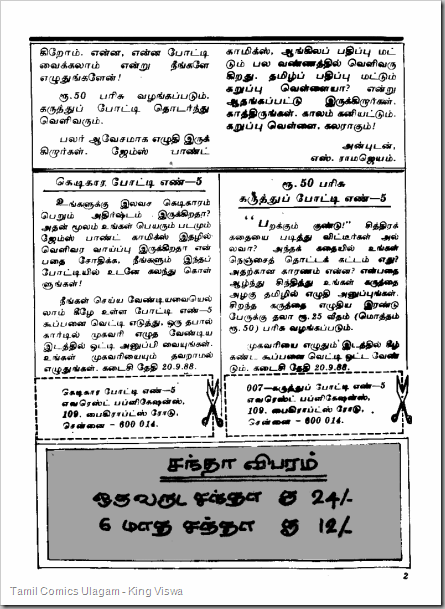 கிறோம். என்ன, என்ன போட்டி
வைக்கலாம் என்று நீங்களே
எழுதுங்களேன்!
ரூ.50 பரிசு வழங்கப்படும்.
கருத்துப் போட்டி தொடர்ந்து
வெளிவரும்.
பலர் ஆவேசமாக எழுதி இருக்
கிறார்கள். ஜேம்ஸ் பாண்ட்
காமிக்ஸ், ஆங்கிலப் பதிப்பு மட்
டும் பல வண்ணத்தில் வெளிவரு
கிறது. தமிழ்ப் பதிப்பு மட்டும்
கறுப்பு வெள்ளையா? என்று
ஆதங்கப்பட்டு இருக்கிறார்கள்.
காத்திருங்கள். காலம் கனியட்டும்.
கறுப்பு வெள்ளை, கலராகும்!
அன்புடன்,
எஸ். ராமஜெயம்.
கெடிகார போட்டி எண்—5
உங்களுக்கு இலவச கெடிகாரம்
பெறும் அதிர்ஷ்டம் இருக்கிறதா?
அதன் மூலம் உங்கள் பெயரும் படமும்
ஜேம்ஸ் பாண்ட் காமிக்ஸ் இதழில்
வெளிவர வாய்ப்பு இருக்கிறதா என்
பதை சோதிக்க, நீங்களும் இந்தப்
போட்டியில் உடனே கலந்து கொள்
ளுங்கள்!
நீங்கள் செய்ய வேண்டியவையெல்
லாம் கீழே உள்ள போட்டி எண்—5
கூப்பனை வெட்டி எடுத்து, ஒரு தபால்
கார்டில் முகவரி எழுத வேண்டிய
இடத்தில் ஒட்டி அனுப்பி வையுங்கள்.
உங்கள் முகவரியையும் தவறாமல்
எழுதுங்கள். கடைசி தேதி 20.9.88.
ரூ. 50 பரிசு
கருத்துப் போட்டி எண்—5
"பறக்கும் குண்டு!" சித்திரக்
கதையை படித்து விட்டீர்கள் அல்
லவா? அந்தக் கதையில் உங்கள்
நெஞ்சைத் தொட்டக் கட்டம் எது?
அதற்கான காரணம் என்ன? என்பதை
ஆழ்ந்து சிந்தித்து உங்கள் கருத்தை
அழகு தமிழில் எழுதி அனுப்புங்கள்.
சிறந்த கருத்தை எழுதிய இரண்டு
பேருக்கு தலா ரூ. 25 வீதம் (மொத்தம்
ரூ.50) பரிசு வழங்கப்படும்.
முகவரியை எழுதும் இடத்தில் கீழ்
கண்ட கூப்பனை வெட்டி ஒட்ட வேண்
டும். கடைசி தேதி 20.9.88.
கெடிகார போட்டி எண்—5
எவரெஸ்ட் பப்ளிகேஷன்ஸ்,
109, பைகிராப்ட்ஸ் ரோடு,
சென்னை - 600 014.
007—கருத்துப் போட்டி எண்—5
எவரெஸ்ட் பப்ளிகேஷன்ஸ்,
109, பைகிராப்ட்ஸ் ரோடு,
சென்னை - 600 014.
சந்தா விபரம்
ஒருவருட சந்தா ரூ 24/-
6 மாத சந்தா ரூ 12/-
2
Tamil Comics Ulagam - King Viswa